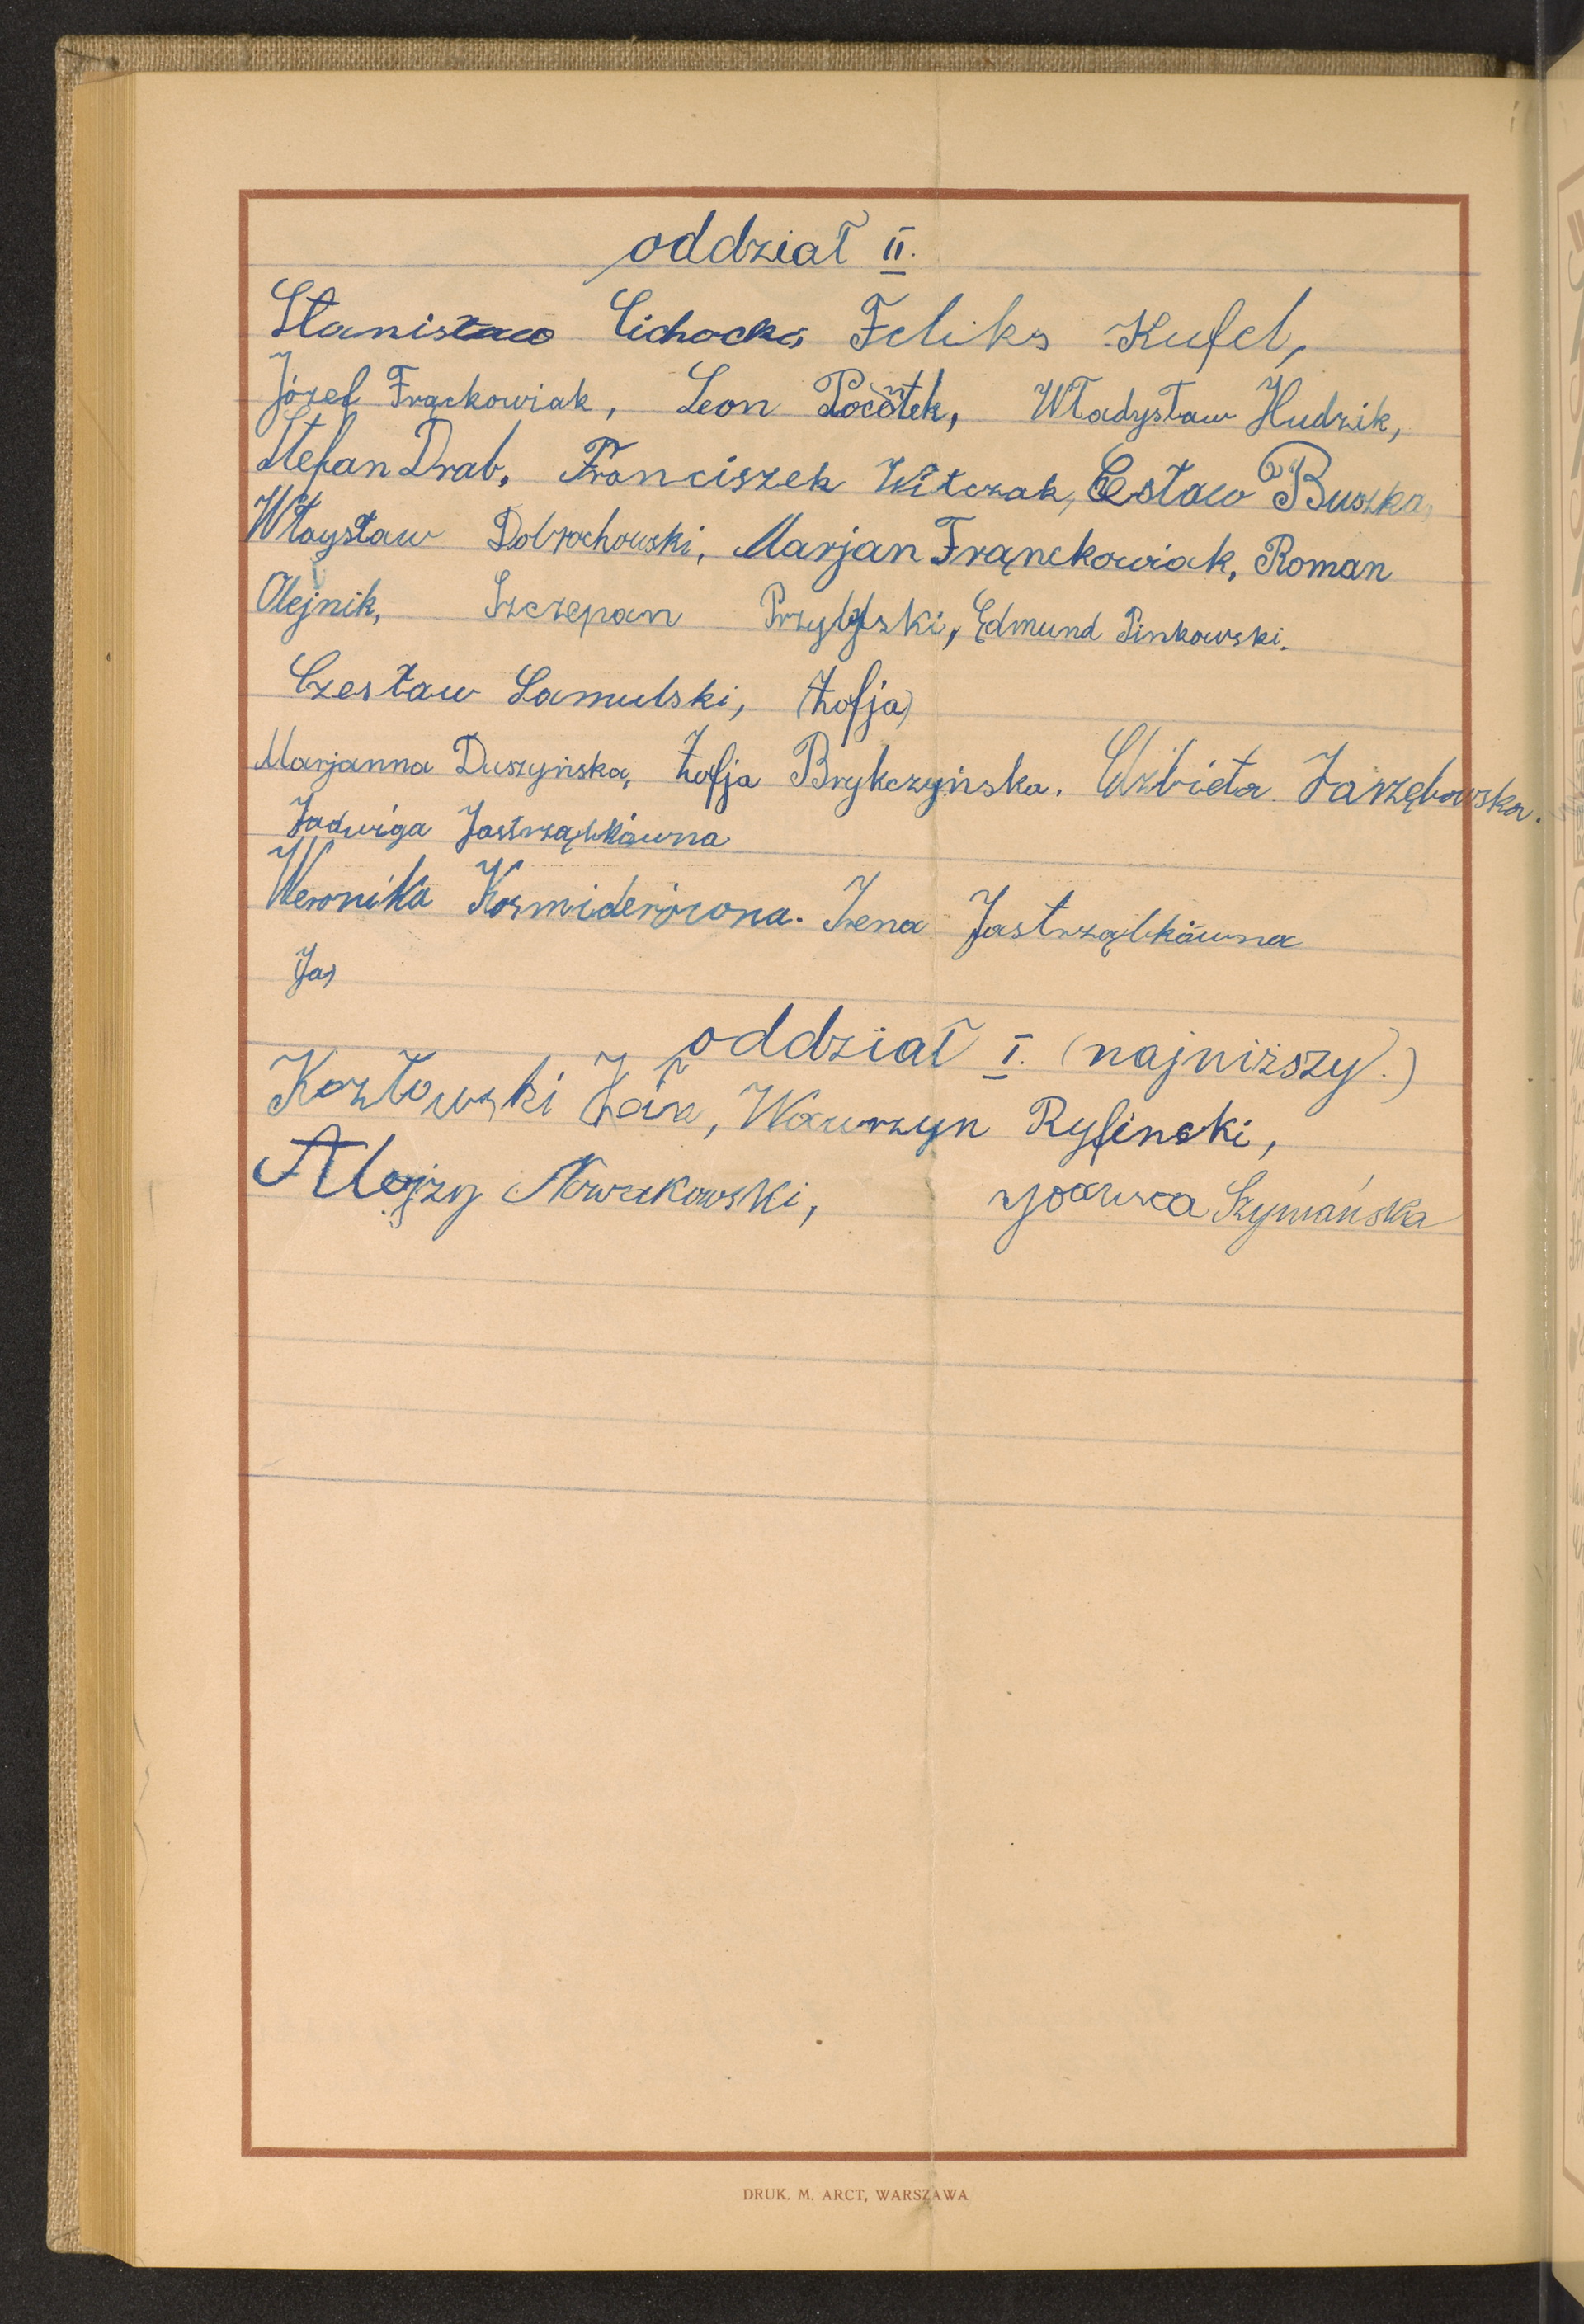 oddział II.
Stanisław Cichocki Feliks Kufel,
Józef Frąckowiak, Leon Początek, Władysław Hudzik,
Stefan Drab, Franciszek Witczak, Cestaw Buszka,
Właystaw Dobrochowski, Marjan Franckowiak, Roman
Olejnik, Szczepan Przybylski, Edmund Pinkowski.
Czesław Samulski, (Zofja)
Marjanna Duszyńska, Zofja Brykczyńska. Elżbieta Jarzębowska.
Jadwiga Jastrząbkówna
Weronika Kozmiderówna. Irena Jastrząbkówna
(Ja)
oddział I. (najniższy.)
Kozłowski Jan, Wawrzyn Ryfinski,
Alojzy Nowakowski, Szymańska
DRUK. M. ARCT, WARSZAWA